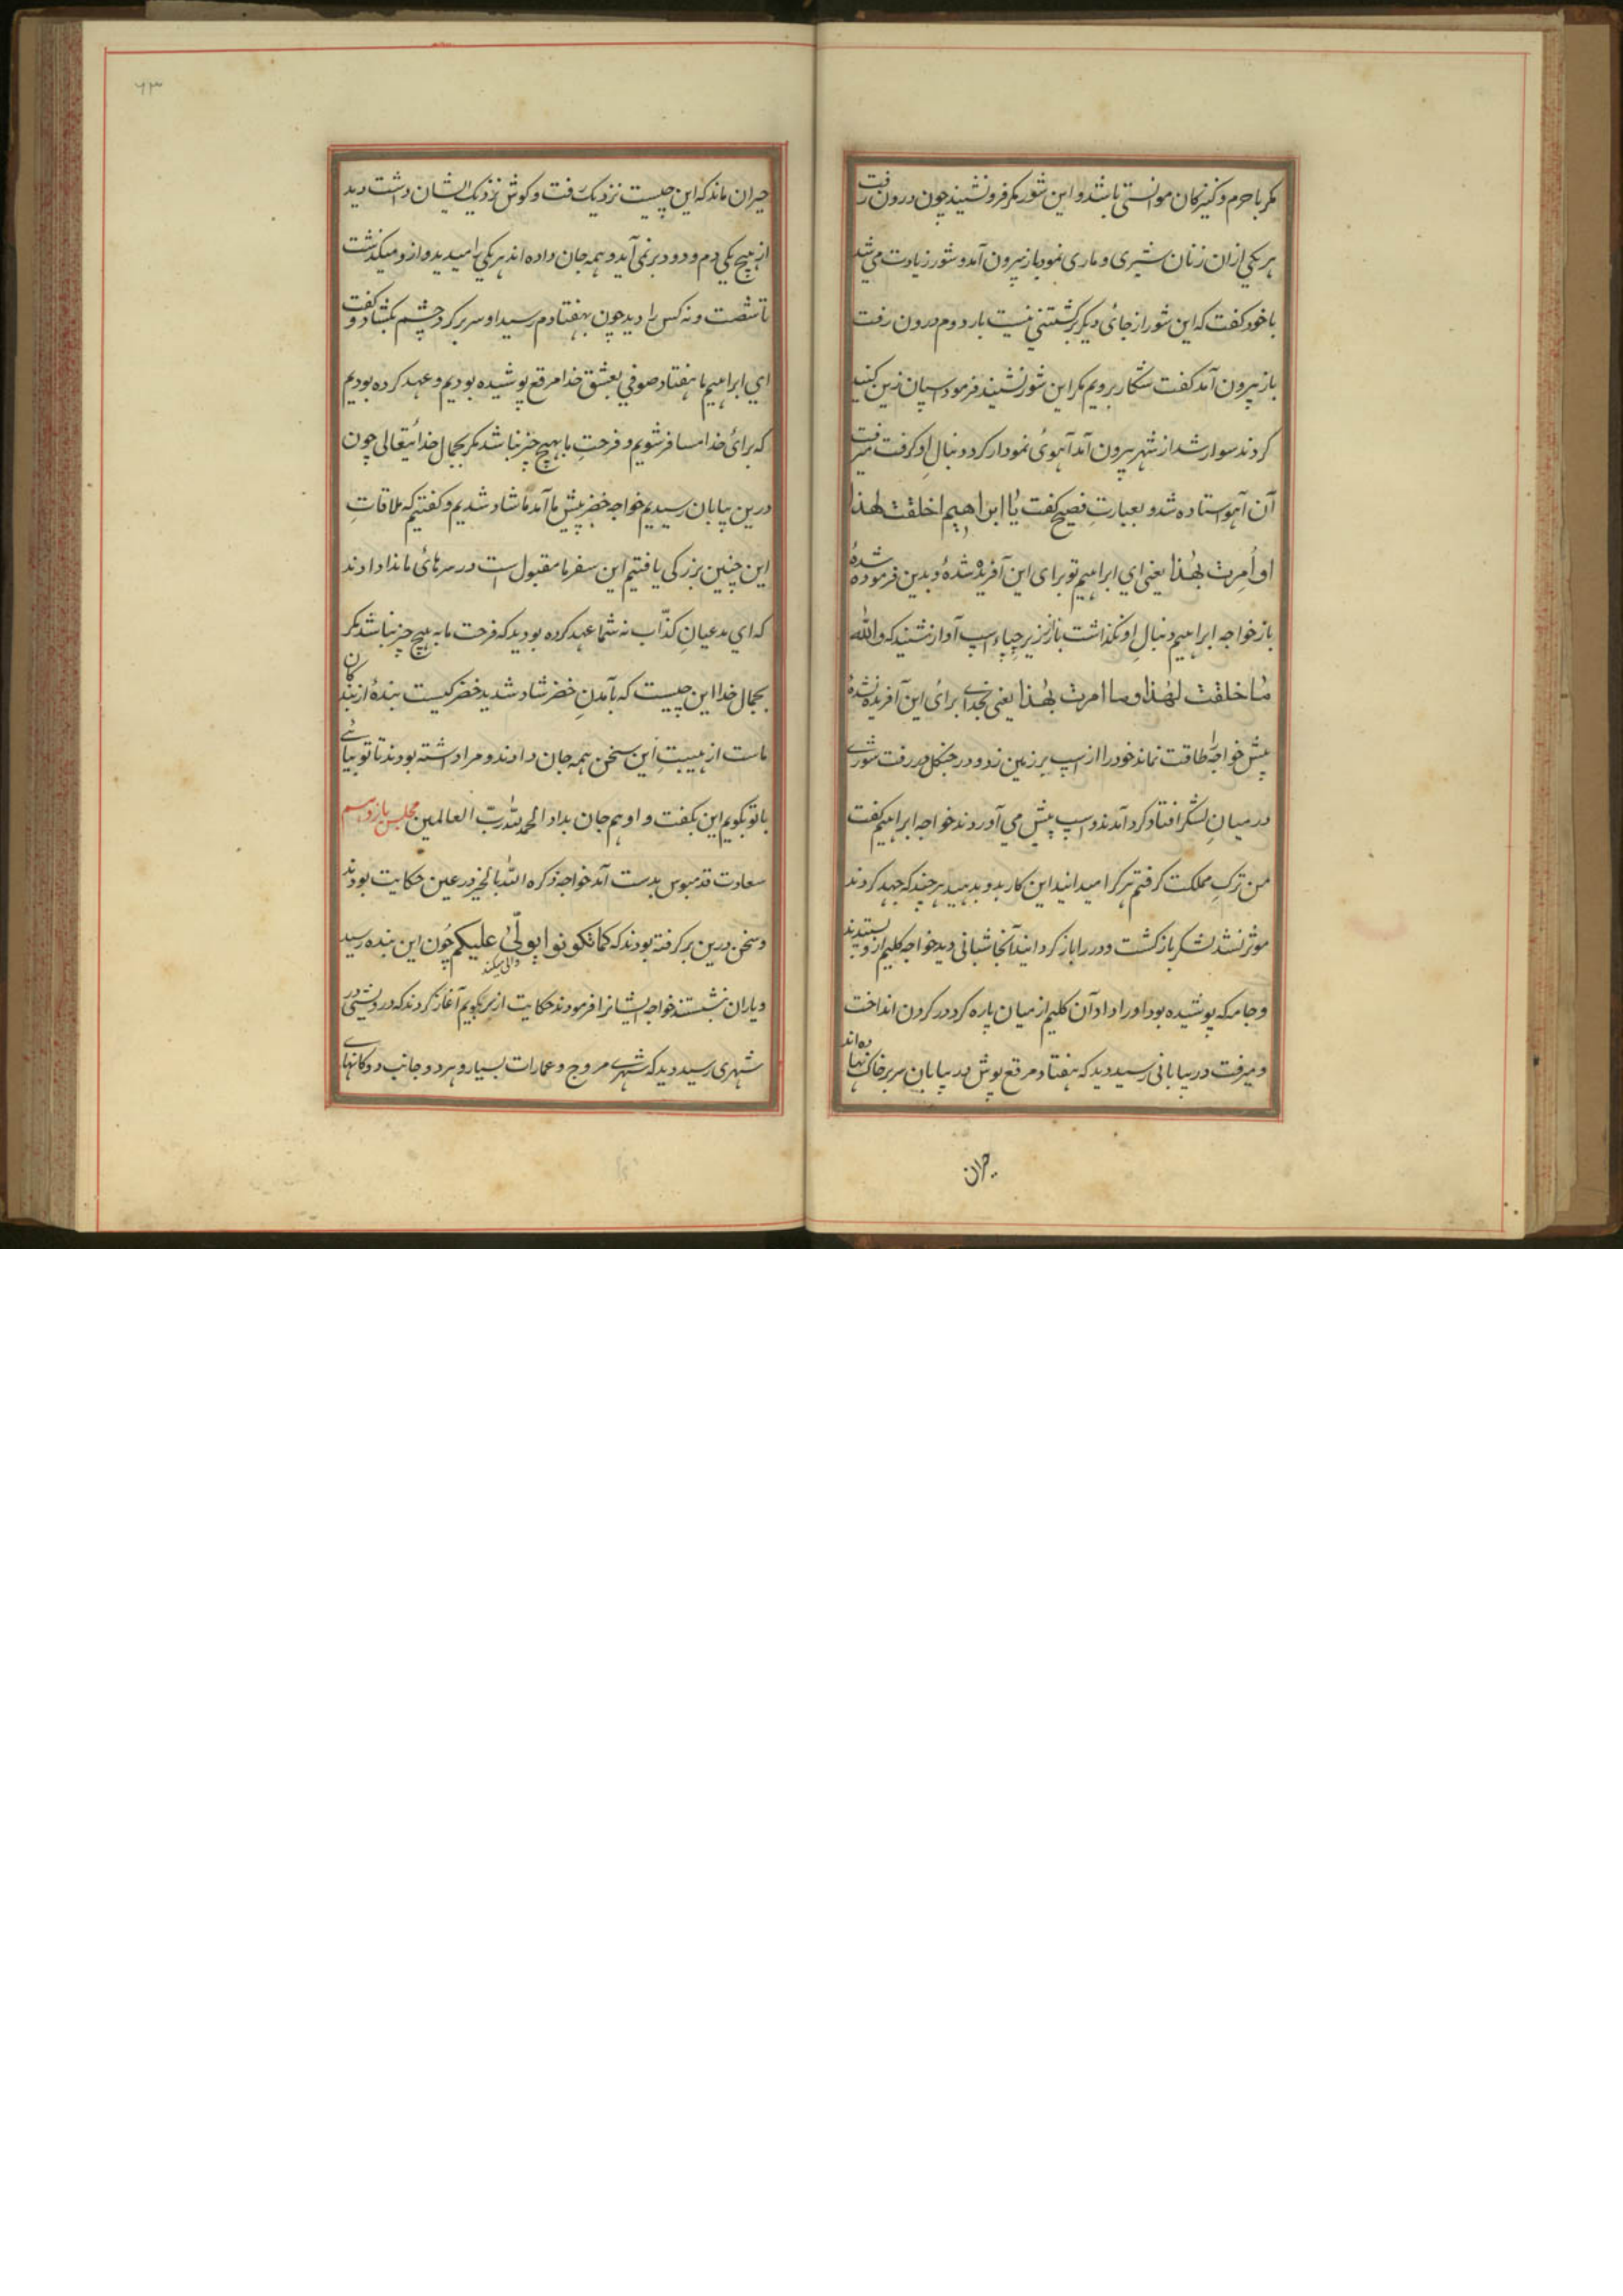 مکر با حرم و کنیزکان موانستی باشد و این شور مکر فرو نشیند چون درون رفت
هر یکی ازان زنان شیری و ماری نمود باز بیرون آمد و شور زیادت می شد
با خود کفت که این شور از جائ دیکر برکشتنی نیست بار دوم درون رفت
باز بیرون آمد کفت شکار برویم مکر این شور نشیند فرمود اسپان زین کنید
کردند سوار شد از شهر بیرون آمد آهوئ نمودار کرد دنبالِ او کرفت میرفت
آن آهو استاده شد و بعبارتِ فصیح کفت یا ابراهیم اخلقت لهذا
او اُمِرت بهذا یعنی ای ابراهیم تو برای این آفریده شدهٔ و بدین فرموده شدهٔ
باز خواجه ابراهیم دنبالِ او نکذاشت باز از زیر اسپ آواز شنید که والله
ما خلقت لهذا و ما امرت بهذا یعنی بخدای برائ این آفریده نشدهٔ
پیش خواجه را طاقت نماند خود را از اسپ بر زمین زد و در جنکل در رفت شوری
در میانِ لشکر افتاد کرد آمدند و اسپ پیش می آوردند خواجه ابراهیم کفت
من ترکِ مملکت کرفتم هر کرا میدانید این کار بدو بدهید هر چند که جهد کردند
موثر نشد لشکر باز کشت و در را باز کردانید آنجا شبانی دید خواجه کلیم ازو بستدند
و جامه که پوشیده بود او را داد آن کلیم از میان پاره کرد در کردن انداخت
و میرفت در بیابانی رسید دید که هفتاد مرقع پوش در بیابان سر بر خاک نهاده اند
حیران
۶۳
حیران ماند که این چیست نزدیک رفت و کوش نزدیک ایشان داشت دید
از هیچ یکی دم و دود بر نمی آید و همه جان داده اند هر یکی را میدید و ازو میکذشت
تا شصت و نه کس را دید چون بهفتادم رسید او سر بر کرد چشم بکشاد و کفت
ای ابراهیم ما هفتاد صوفی بعشقِ خدا مرقع پوشیده بودیم و عهد کرده بودیم
که برائ خدا مسافر شویم و فرحتِ ما بهیچ چیز نباشد مکر بجمال خدائیتعالی چون
درین بیابان رسیدیم خواجه خضر پیش ما آمد ما شاد شدیم و کفتیم که ملاقاتِ
این چنین بزرکی یافتیم این سفر ما مقبول است در سرهائ ما ندا دادند
که ای مدعیانِ کذّاب نه شما عهد کرده بودید که فرحت ما به هیچ چیز نباشد مکر
بجمال خدا این چیست که بآمدنِ خضر شاد شدید خضر کیست بندهٔ از بندکان
ماست از هیبتِ این سخن همه جان دادند و مرا داشته بودند تا تو بیائے
با تو بکویم این بکفت و او هم جان بداد الحمد لله رب العالمین مجلس یازدهم
سعادت قدمبوس بدست آمد خواجه ذکره الله بالخیر در عین حکایت بودند
و سخن درین بر کرفته بودند که کما تکونوا یولّی علیکم چون این بنده رسید
والی میکند
و یاران نشستند خواجه ایشانرا فرمودند حکایت از سر بکویم آغاز کردند که درویشی در
شهری رسید دید که شهرے مروج و عمارات بسیار و هر دو جانب دوکانهای